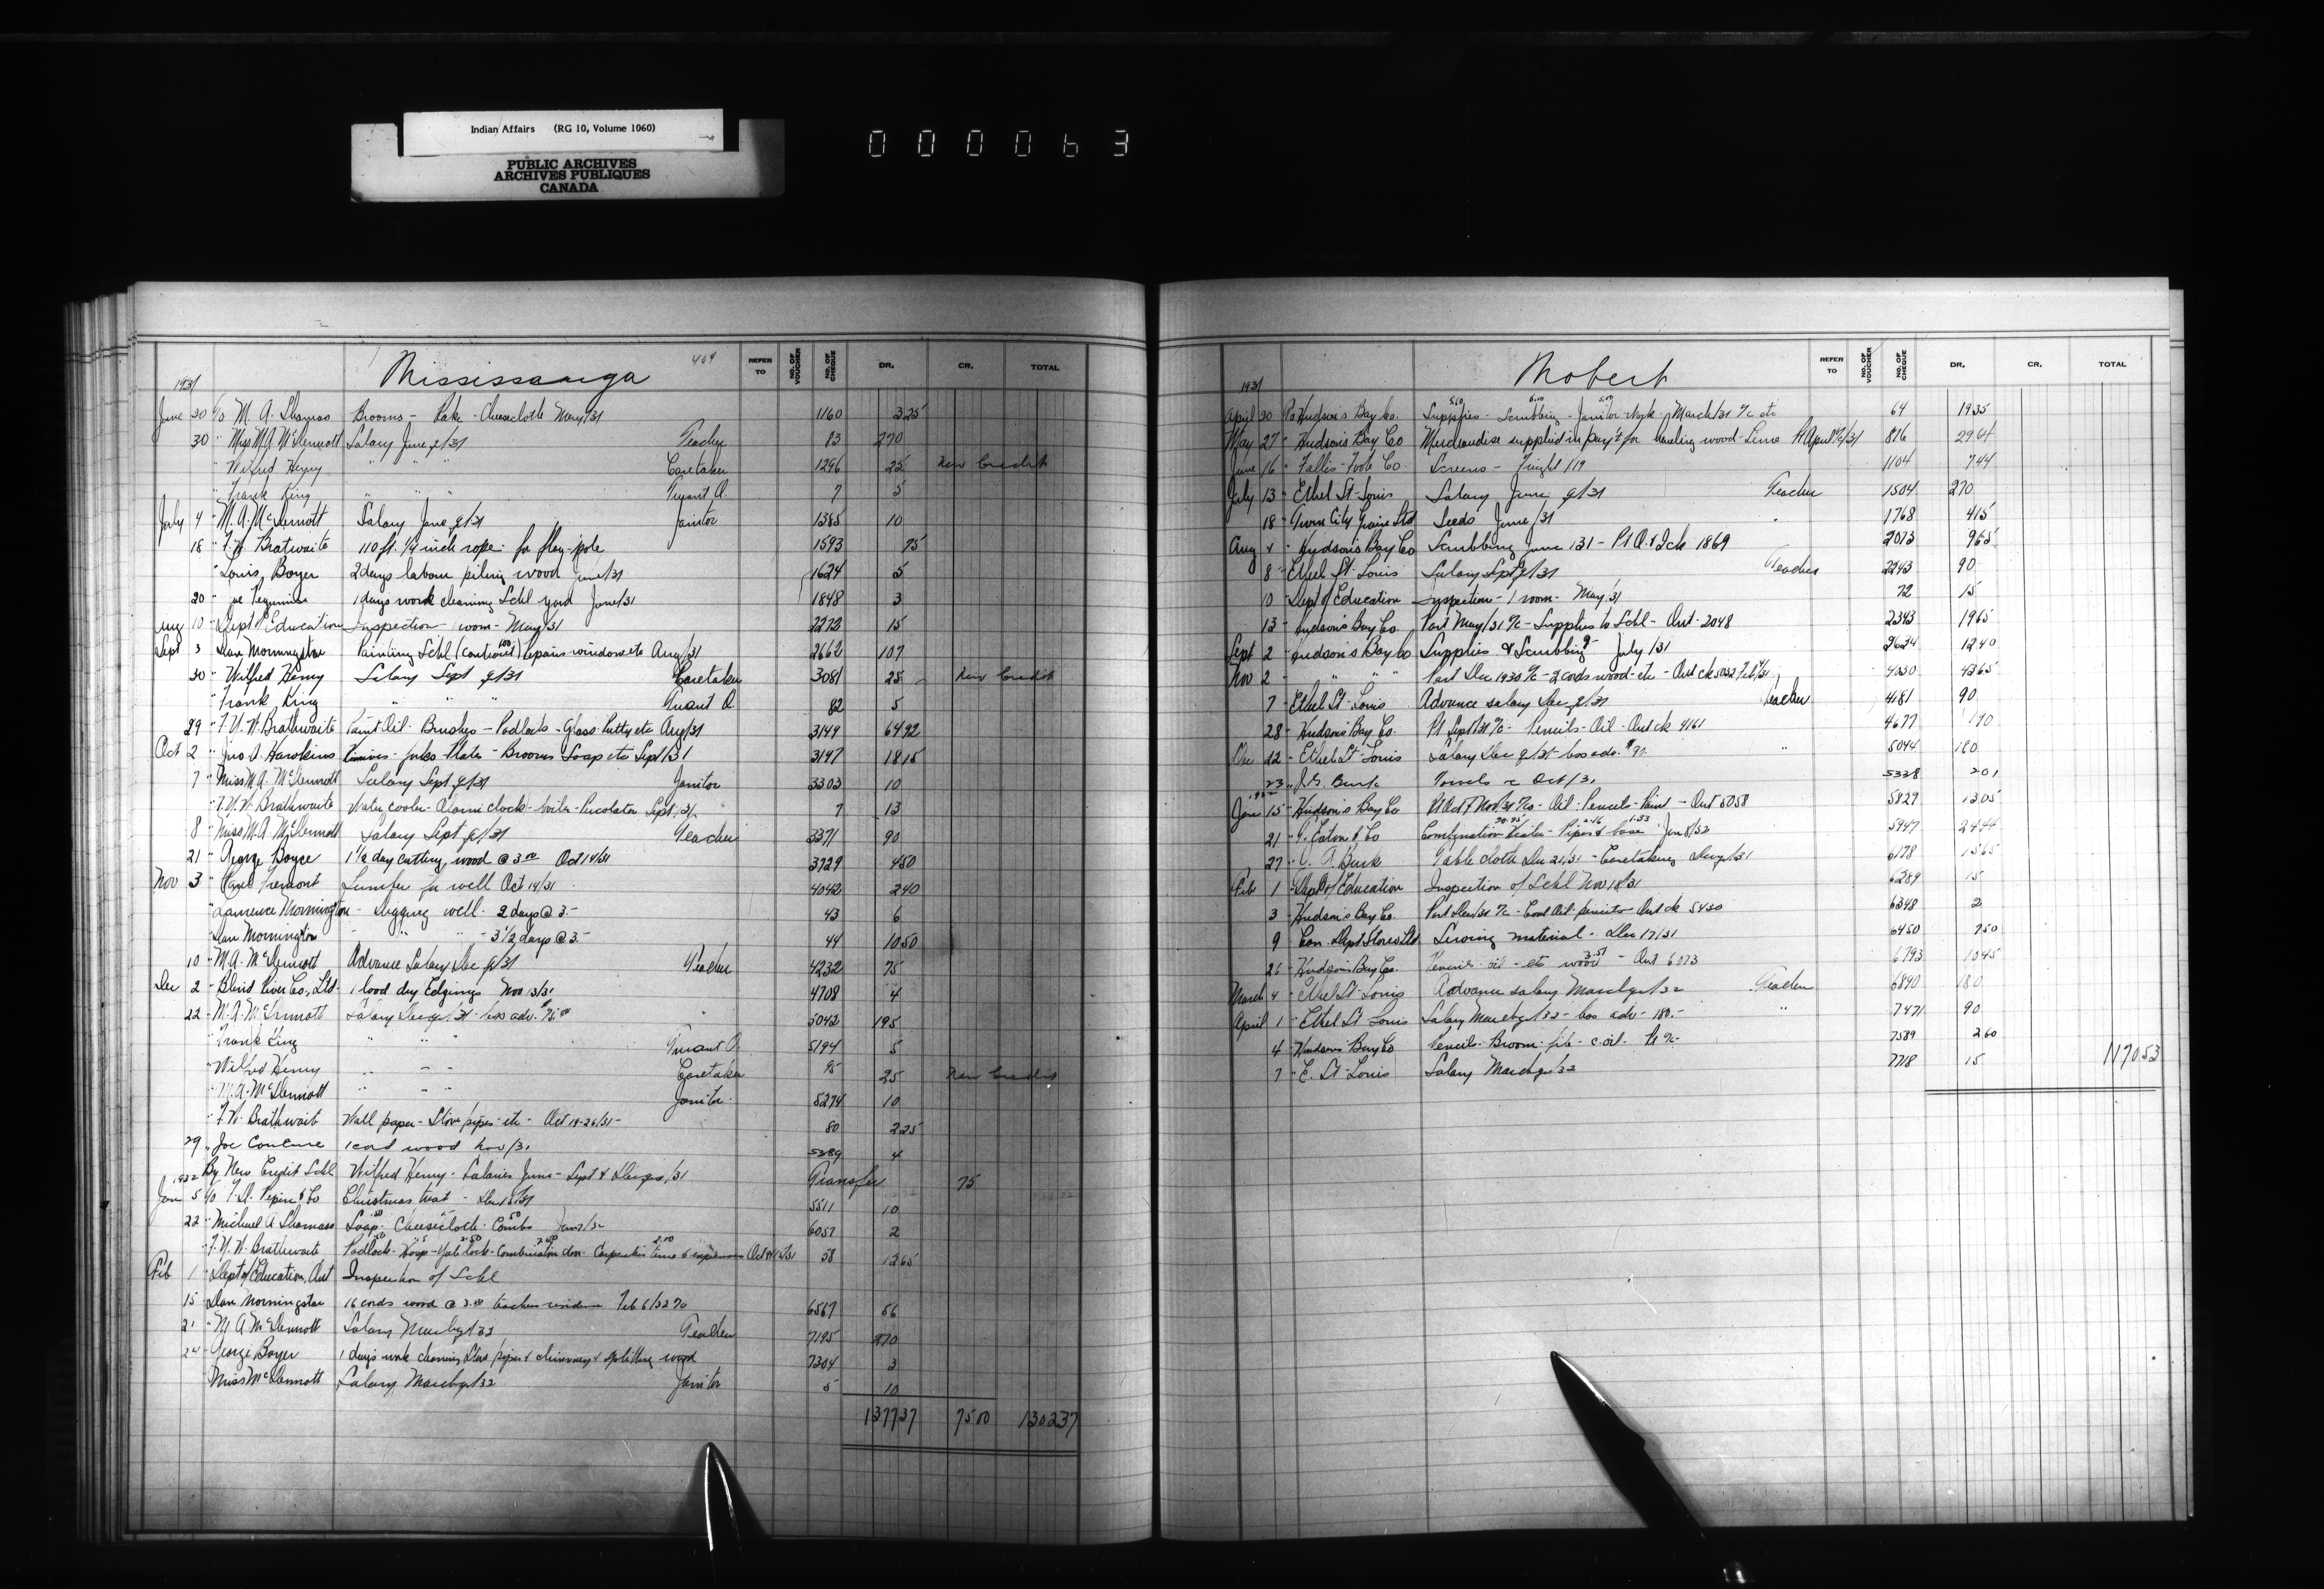 Indian Affairs (RG 10, Volume 1060)
PUBLIC ARCHIVES
ARCHIVES PUBLIQUES
CANADA
000063
Mississauga 469
REFER TO NO. OF VOUCHER NO. OF CHEQUE DR. CR. TOTAL
1931
June 20 To M. A. Thomas Brooms - - Cheesecloth May/31 1160 3.25
30 " Miss M.A. McDermott Salary June q/31 Teacher 83 270
" Wilfred Henry " " " Caretaker 1296 25 New Credit
" Frank King " " " Truant O. 7 5
July 4 " M.A. McDermott Salary June q/31 Janitor 1385 10
18 " Bratwaite 110 ft. 1/4 inch rope for flag-pole 1593 75
" Louis Boyer 2 days labour piling wood June/31 1624 5
20 " Joe 1 days work cleaning Schl yard June/31 1848 3
Aug 10 " Dept of Education Inspection - 1 room - May/31 2272 15
Sept 3 " Dan Morningstar Painting Schl (contract) repairs windows etc Aug/31 2662 107
30 " Wilfred Henry Salary Sept q/31 Caretaker 3081 25 New Credit
" Frank King " " " Truant O. 82 5
29 " Brathwaite Paint Oil - Brushes - Padlocks - Glass Putty etc Aug/31 3149 64 92
Oct 2 " Jno A. Hawkins Knives - forks Plates - Brooms Soap etc Sept/31 3147 18 15
7 " Miss M.A. McDermott Salary Sept q/31 Janitor 3303 10
" Brathwaite Water cooler - Alarm clock - boiler - Percolator Sept/31 7 13
8 " Miss M.A. McDermott Salary Sept q/31 Teacher 3371 90
21 " George Boyce 1 1/2 day cutting wood @ 3.00 Oct 14/31 3729 4 50
Nov 3 " Fremont Lumber for well Oct 19/31 4042 2 40
" Laurence Mornington - Digging well - 2 days @ 3 - 43 6
" Dan Mornington " " - 3 1/2 days @ 3 - 44 10 50
10 " M.A. McDermott Advance Salary Dec q/31 Teacher 4232 75
Dec 2 " Blind River Co., Ltd. 1 load dry Edgings Nov 13/31 4708 4
22 " M.A. McDermott Salary Dec q/31 - less adv. 75.00 " 5042 195
" Frank King " " " Truant O. 5194 5
" Wilfred Henry " " " Caretaker 95 25 New Credit
" M.A. McDermott " " Janitor 5274 10
" Brathwaite Wall paper - Stove pipes - etc - Oct 19-26/31 - 80 2 25
29 " Joe Couture 1 cord wood Nov/31 5289 4
1932 By New Credit Schl Wilfred Henry - Salaries June - Sept & Dec qrs/31 Transfer 75
Jan 5 To Pepin & Co Christmas treat - Dec 5511 10
22 " Michael A Thomas Soap - Cheesecloth - Combs Jan 7/32 6057 2
" Brathwaite Padlock - Hasp - Yale lock - Combination door - Carpenters time & expenses 58 12 65
Feb 1 " Dept of Education, Ont Inspection of Schl
15 " Dan Morningstar 16 cords wood @ 3.50 teachers residence Feb 6/32 6567 56
21 " M A McDermott Salary March q/32 Teacher 7195 270
24 " George Boyer 1 days work cleaning Stove pipes & chimney & splitting wood 7304 3
Miss McDermott Salary March q/32 Janitor 5 10
1377 37 75 00 1302 37
Mobert
REFER TO NO. OF VOUCHER NO. OF CHEQUE DR. CR. TOTAL
1931
April 30 To Hudson's Bay Co. Supplies - Scrubbing - Janitor Work - March/31 a/c etc 64 19 35
May 27 " Hudson's Bay Co Merchandise supplied in pay't for hauling wood - Lime Pt April a/c/31 816 29 64
June 16 " Fallis-Foote Co. Screens - Freight 1.19 1104 7 44
July 13 " Ethel St-Louis Salary June q/31 Teacher 1504 270
18 " Twin City Grain Ltd Seeds June/31 " 1768 4 15
Aug 4 " Hudson's Bay Co Scrubbing June/31 - Pt a/c Ick 1869 2073 9 65
8 " Ethel St. Louis Salary Sept q/31 Teacher 2243 90
10 " Dept of Education Inspection - 1 room - May/31 72 15
13 " Hudson's Bay Co. Part May/31 a/c - Supplies to Schl - Ont 2048 2343 19 65
Sept 2 " Hudson's Bay Co Supplies & Scrubbing - July/31 2634 12 40
Nov 2 " " " " Part Dec 1930 a/c - 2 cords wood - etc - 4030 43 65
7 " Ethel St-Louis Advance salary Dec q/31 Teacher 4181 90
28 " Hudson's Bay Co. Pt Sept/31 a/c - Pencils - Oil - Ont ck 4161 4677 1 70
Dec 12 " Ethel St-Louis Salary Dec q/31 - less adv. $90. " 5044 180
23 " J.G. Burk Towels Oct/31 5328 2 01
1932
Jan 15 " Hudson's Bay Co Pt Oct & Nov/31 a/cs - Oil - Pencils - Paint - Ont 5058 5829 13 05
21 " T. Eaton & Co Combination Heater - Pipes & base Jan 8/32 5947 24 44
27 " Burk Table cloth Dec 21/31 - Caretaking 6178 15 65
Feb 1 " Dept of Education Inspection of Schl Nov 18/31 6289 15
3 " Hudson's Bay Co. Part Dec/31 a/c - Coal Oil - pencils - Ont ck 5430 6348 2
9 " Can. Dept Stores Ltd Sewing material - Dec 17/31 6450 7 50
26 " Hudson's Bay Co. Pencils - oil - etc wood - Ont 6073 6793 10 45
March 4 " Ethel St-Louis Advance salary March q/32 Teacher 6890 180
April 1 " Ethel St Louis Salary March q/32 - less adv - 180. - " 7471 90
4 " Hudsons Bay Co Pencils - Broom - c. oil - Pt a/c - 7589 2 60
7 " E. St-Louis Salary March q/32 7718 15 1170 53